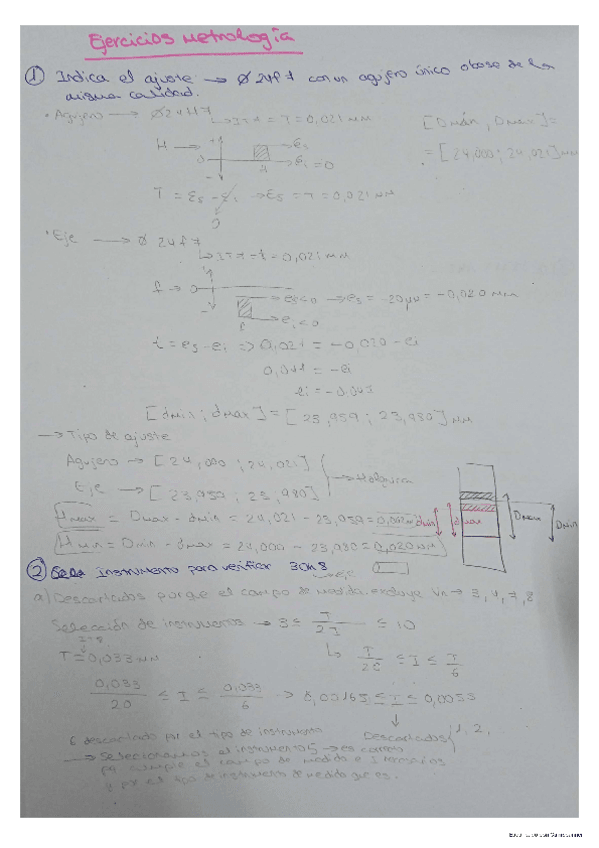 Ejercicios Metrología
① Indica el ajuste → Ø 24f7 con un agujero único o base de la
misma calidad.
• Agujero → Ø24H7
↳ IT7 = T = 0,021 mm
[Dmín, Dmax] =
= [24,000; 24,021] mm
H → 0 + - Es
Ei = 0
H
T = Es - Ei → Es = T = 0,021 mm
0
• Eje → Ø 24f7
↳ IT7 = t = 0,021 mm
f → 0 + - es<0 → es = -20μm = -0,020 mm
ei<0
f
t = es - ei => 0,021 = -0,020 - ei
0,041 = -ei
ei = -0,041
[dmin; dmax] = [23,959; 23,980] mm
→ Tipo de ajuste
Agujero → [24,000; 24,021]
Eje → [23,959; 23,980]
→ Holgura
Hmax = Dmax - dmin = 24,021 - 23,959 = 0,062 mm
Hmin = Dmin - dmax = 24,000 - 23,980 = 0,020 mm
dmin dmax Dmax Dmin
② instrumento para verificar 30h8
eje
a) Descartados porque el campo de medida excluye Vn → 3, 4, 7, 8
Selección de instrumentos → 3 ≤ T/2I ≤ 10
IT8
T = 0,033 mm
↳ T/20 ≤ I ≤ T/6
0,033/20 ≤ I ≤ 0,033/6 → 0,00165 ≤ I ≤ 0,0055
Descartados 1, 2,
6 descartado por el tipo de instrumento
→ Seleccionamos el instrumento 5 → es correcto
pq cumple el campo de medida e I necesarios
y por el tipo de instrumento de medida que es.